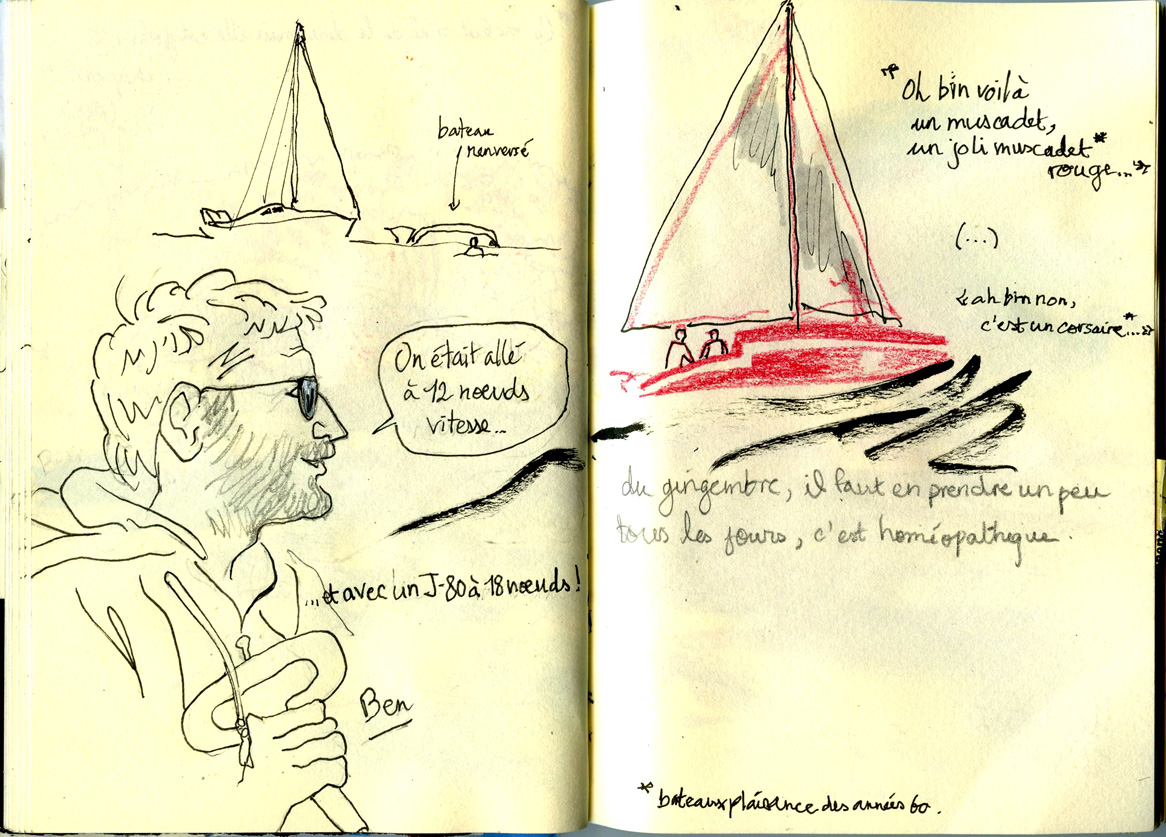 bateau
renversé
On était allé
à 12 nœuds
vitesse...
...et avec un J-80 à 18 nœuds!
Ben
"Oh bin voilà
un muscadet,
un joli muscadet*
rouge..."
(...)
"ah bin non,
c'est un corsaire*..."
du gingembre, il faut en prendre un peu
tous les jours, c'est homéopathique.
* bateaux plaisance des années 60.